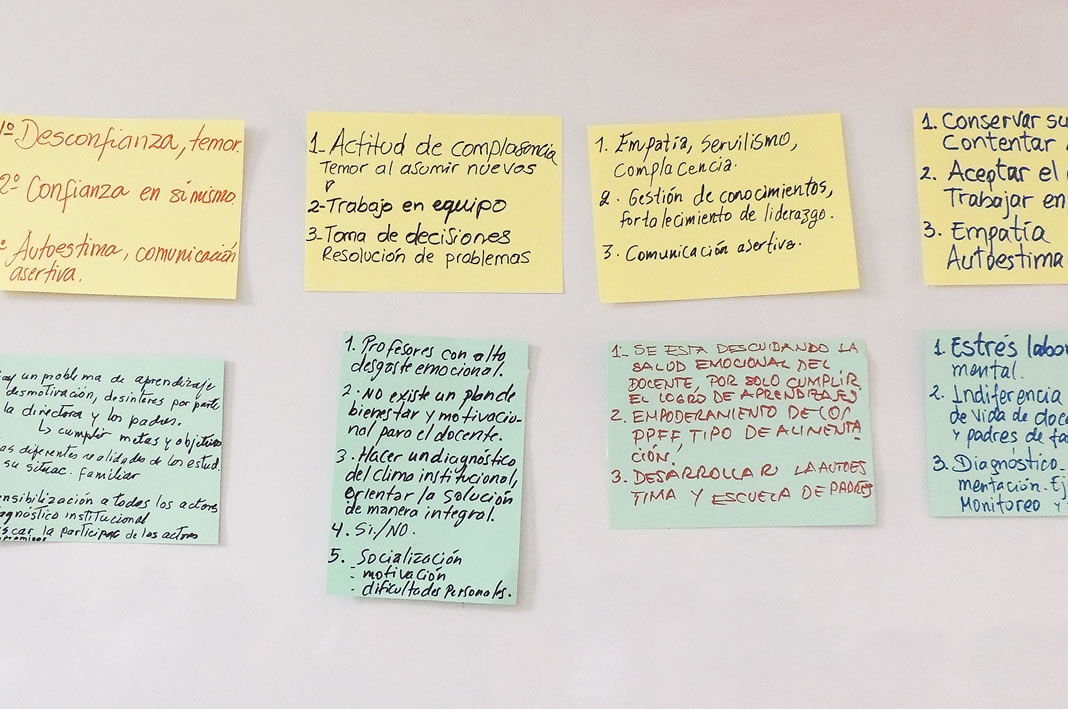 1º Desconfianza, temor.
2º Confianza en si mismo.
Autoestima, comunicación
asertiva.
1- Actitud de complasencia
Temor al asumir nuevos
2- Trabajo en equipo
3- Toma de decisiones
Resolución de problemas
1. Empatía, Servilismo,
Complacencia.
2. Gestión de conocimientos,
fortalecimiento de liderazgo.
3. Comunicación asertiva.
1. Conservar su
Contentar
2. Aceptar el
Trabajar en
3. Empatía
Autoestima
un problema de aprendizaje
desmotivación, desinteres por parte
la directora y los padres.
↳ cumplir metas y objetivo
as diferentes realidades de los estud.
su situac. familiar
ensibilización a todos los actores
agnóstico institucional
scar la participac de los actores
1. Profesores con alto
desgaste emocional.
2. No existe un plan de
bienestar y motivacio-
nal para el docente.
3. Hacer un diagnóstico
del clima institucional,
orientar la solución
de manera integral.
4. Si/NO.
5. Socialización
- motivación
- dificultades personales.
1- SE ESTA DESCUIDANDO LA
SALUD EMOCIONAL DEL
DOCENTE, POR SOLO CUMPLIR
EL LOGRO DE APRENDIZAJES
2. EMPODERAMIENTO DE LOS
PPFF, TIPO DE ALIMENTA-
CIÓN,
3. DESARROLLAR LA AUTOES
TIMA Y ESCUELA DE PADRES
1. Estrés labo
mental.
2. Indiferencia
de vida de doce
y padres de fa
3. Diagnóstico.
mentación. Ej
Monitoreo y